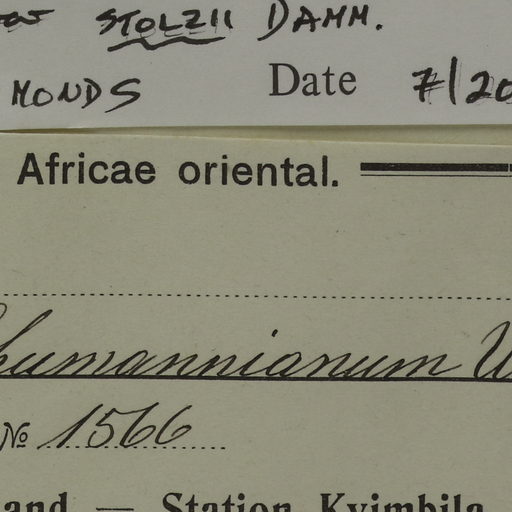 STOLZII DAMM.
MONDS Date 7/20
Africae oriental.
humannianum W
№ 1566
and — Station Kyimbila